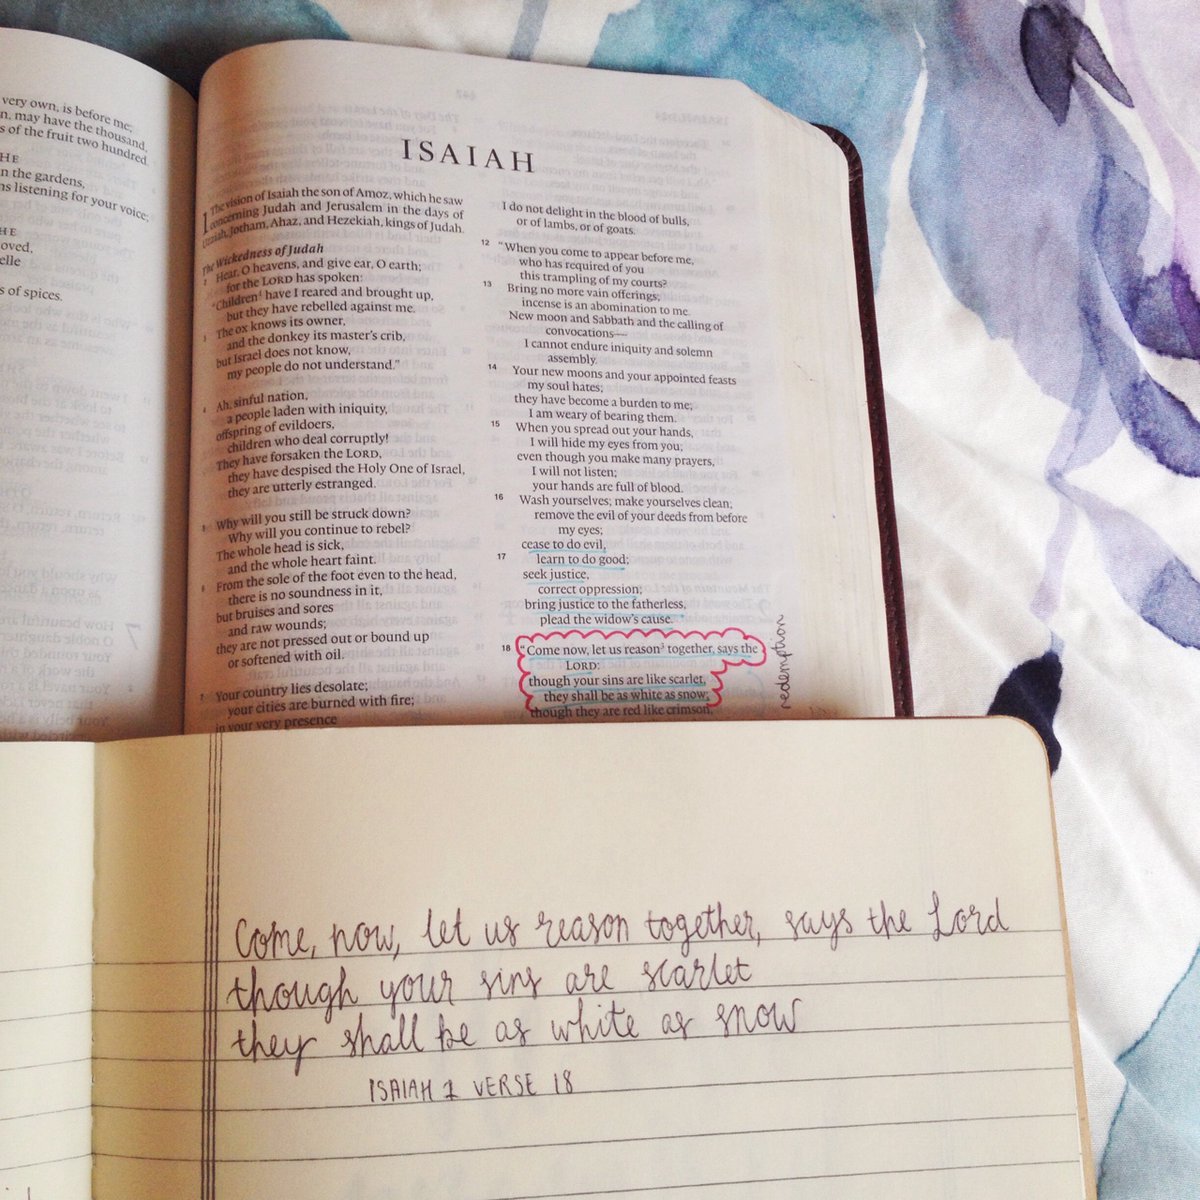 very own, is before me;
may have the thousand,
s of the fruit two hundred.
HE
n the gardens,
ns listening for your voice;
HE
oved,
elle
s of spices.
ISAIAH
1 The vision of Isaiah the son of Amoz, which he saw
concerning Judah and Jerusalem in the days of
Uzziah, Jotham, Ahaz, and Hezekiah, kings of Judah.
The Wickedness of Judah
2 Hear, O heavens, and give ear, O earth;
for the LORD has spoken:
"Children¹ have I reared and brought up,
but they have rebelled against me.
3 The ox knows its owner,
and the donkey its master's crib,
but Israel does not know,
my people do not understand."
4 Ah, sinful nation,
a people laden with iniquity,
offspring of evildoers,
children who deal corruptly!
They have forsaken the LORD,
they have despised the Holy One of Israel,
they are utterly estranged.
5 Why will you still be struck down?
Why will you continue to rebel?
The whole head is sick,
and the whole heart faint.
6 From the sole of the foot even to the head,
there is no soundness in it,
but bruises and sores
and raw wounds;
they are not pressed out or bound up
or softened with oil.
7 Your country lies desolate;
your cities are burned with fire;
in your very presence
I do not delight in the blood of bulls,
or of lambs, or of goats.
12 "When you come to appear before me,
who has required of you
this trampling of my courts?
13 Bring no more vain offerings;
incense is an abomination to me.
New moon and Sabbath and the calling of
convocations—
I cannot endure iniquity and solemn
assembly.
14 Your new moons and your appointed feasts
my soul hates;
they have become a burden to me;
I am weary of bearing them.
15 When you spread out your hands,
I will hide my eyes from you;
even though you make many prayers,
I will not listen;
your hands are full of blood.
16 Wash yourselves; make yourselves clean;
remove the evil of your deeds from before
my eyes;
cease to do evil,
17 learn to do good;
seek justice,
correct oppression;
bring justice to the fatherless,
plead the widow's cause.
18 "Come now, let us reason³ together, says the
LORD:
though your sins are like scarlet,
they shall be as white as snow;
though they are red like crimson,
redemption
Come, now, let us reason together, says the Lord
though your sins are scarlet
they shall be as white as snow
ISAIAH 1 VERSE 18